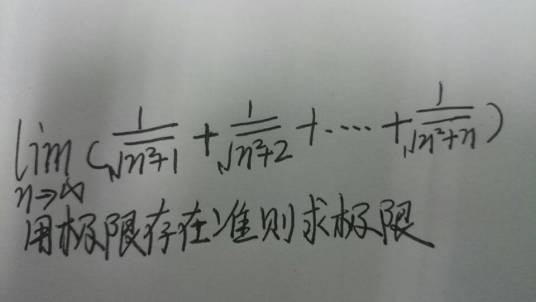 lim n→∞ ( 1/√(n²+1) + 1/√(n²+2) + ···· + 1/√(n²+n) )
用极限存在准则求极限